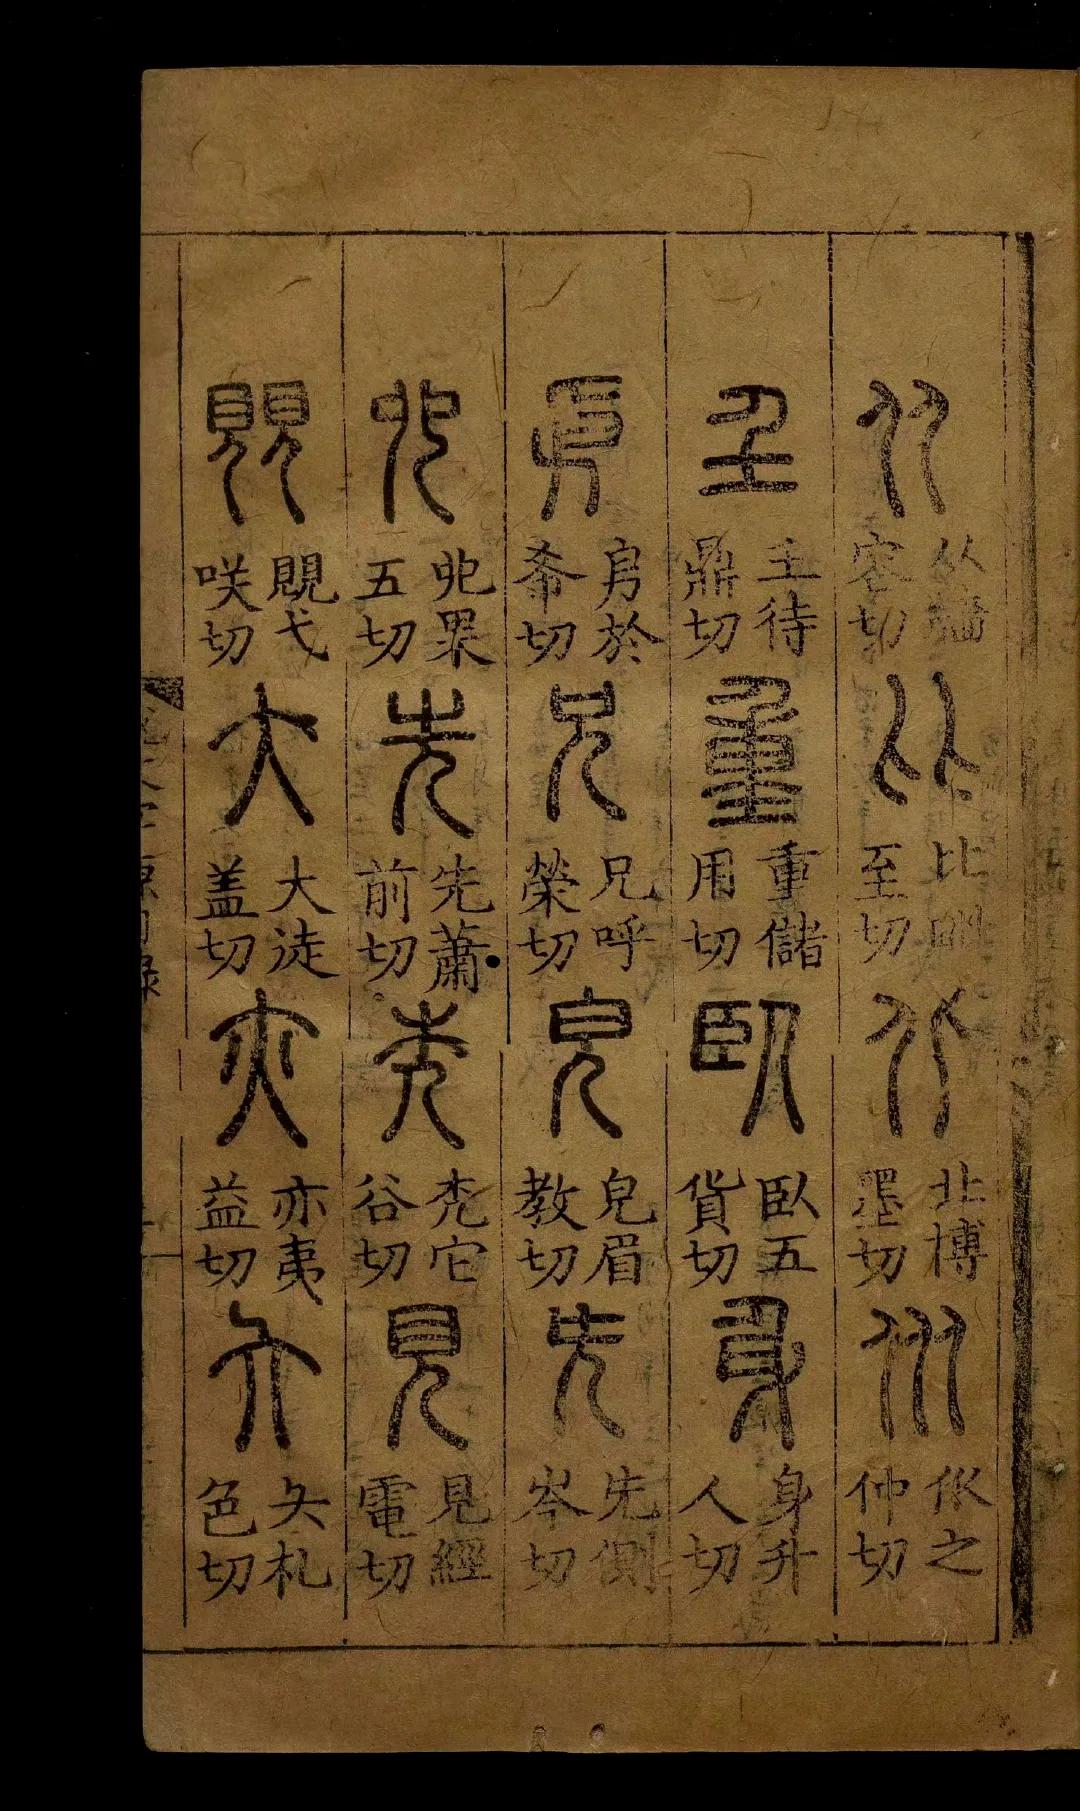 从牆容切
比毗至切
北博墨切
㐺之仲切
𡈼待鼎切
重儲用切
臥五貨切
身升人切
㐆於希切
兄呼榮切
皃眉教切
兂側岑切
𠑹果五切
先蕭前切
禿它谷切
見經電切
覞弋咲切
大徒盖切
亦夷益切
夨札色切